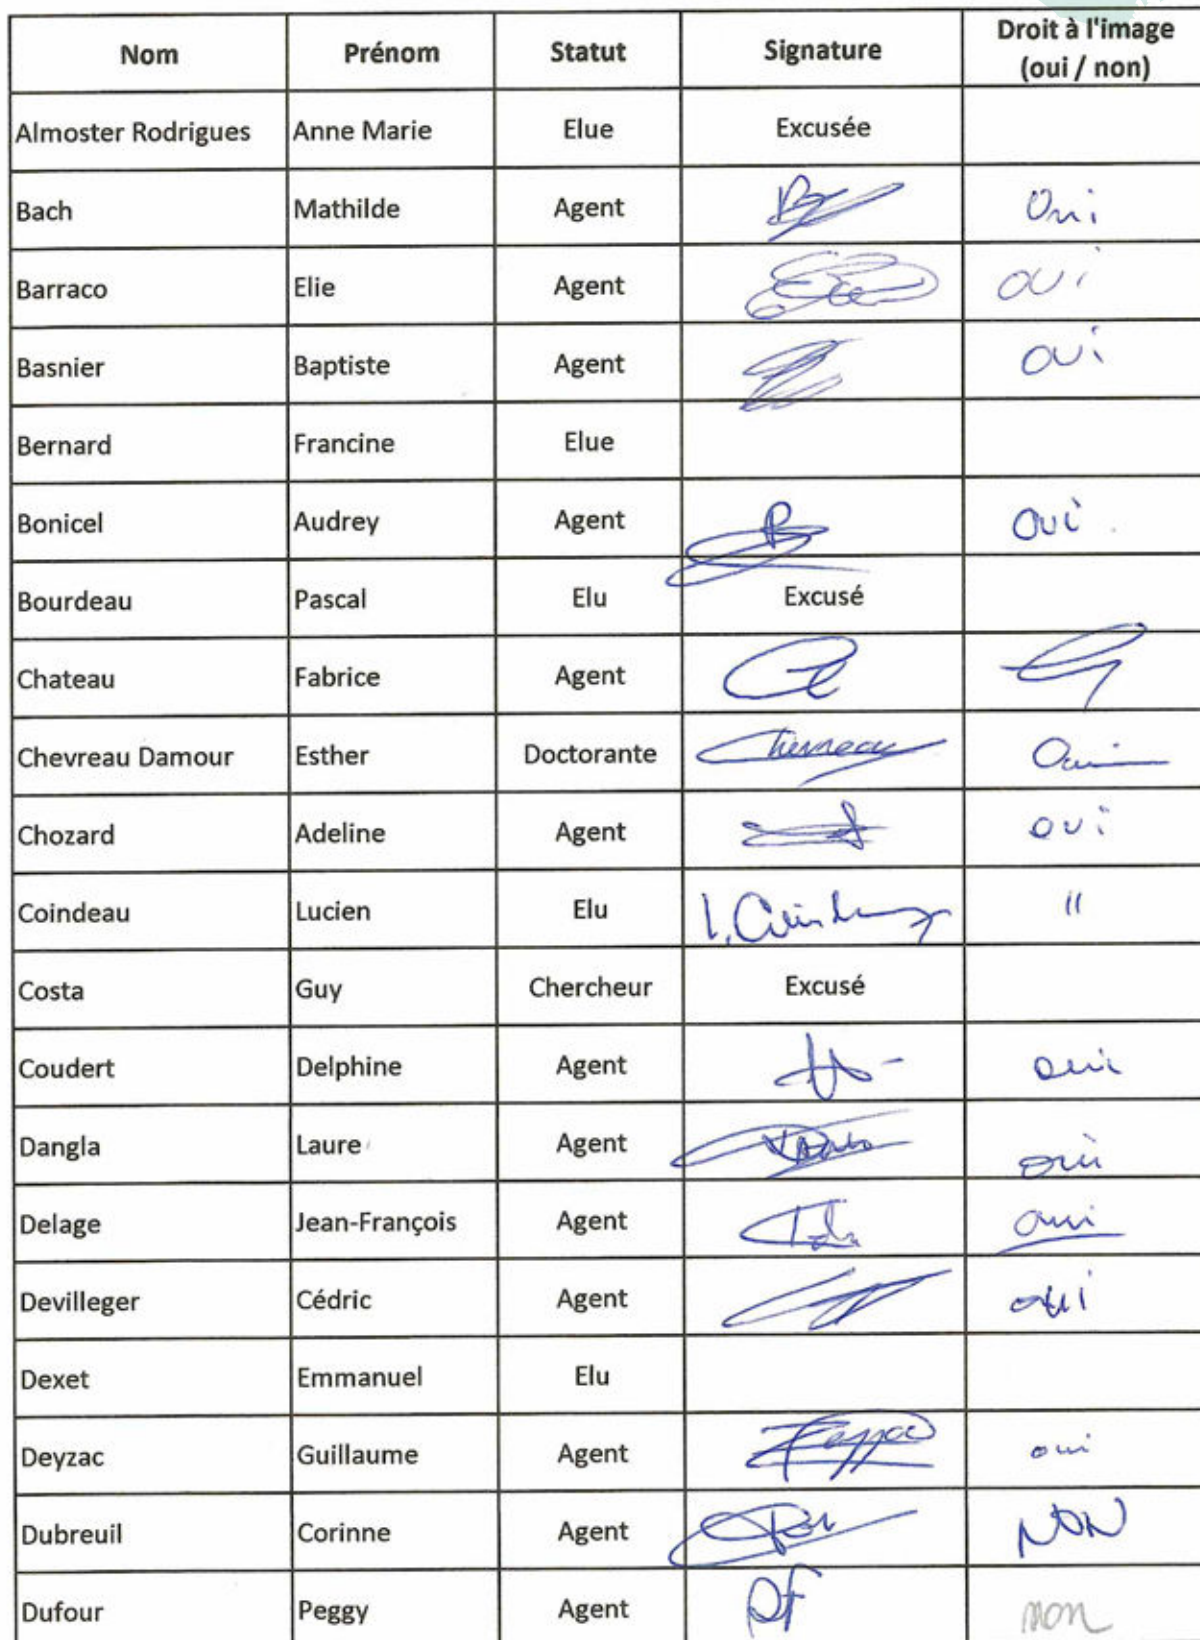 Nom Prénom Statut Signature Droit à l'image
(oui / non)
Almoster Rodrigues Anne Marie Elue Excusée
Bach Mathilde Agent Oui
Barraco Elie Agent oui
Basnier Baptiste Agent oui
Bernard Francine Elue
Bonicel Audrey Agent oui
Bourdeau Pascal Elu Excusé
Chateau Fabrice Agent
Chevreau Damour Esther Doctorante Chevreau Oui
Chozard Adeline Agent oui
Coindeau Lucien Elu L. Coindeau "
Costa Guy Chercheur Excusé
Coudert Delphine Agent oui
Dangla Laure Agent oui
Delage Jean-François Agent oui
Devilleger Cédric Agent oui
Dexet Emmanuel Elu
Deyzac Guillaume Agent oui
Dubreuil Corinne Agent NON
Dufour Peggy Agent non